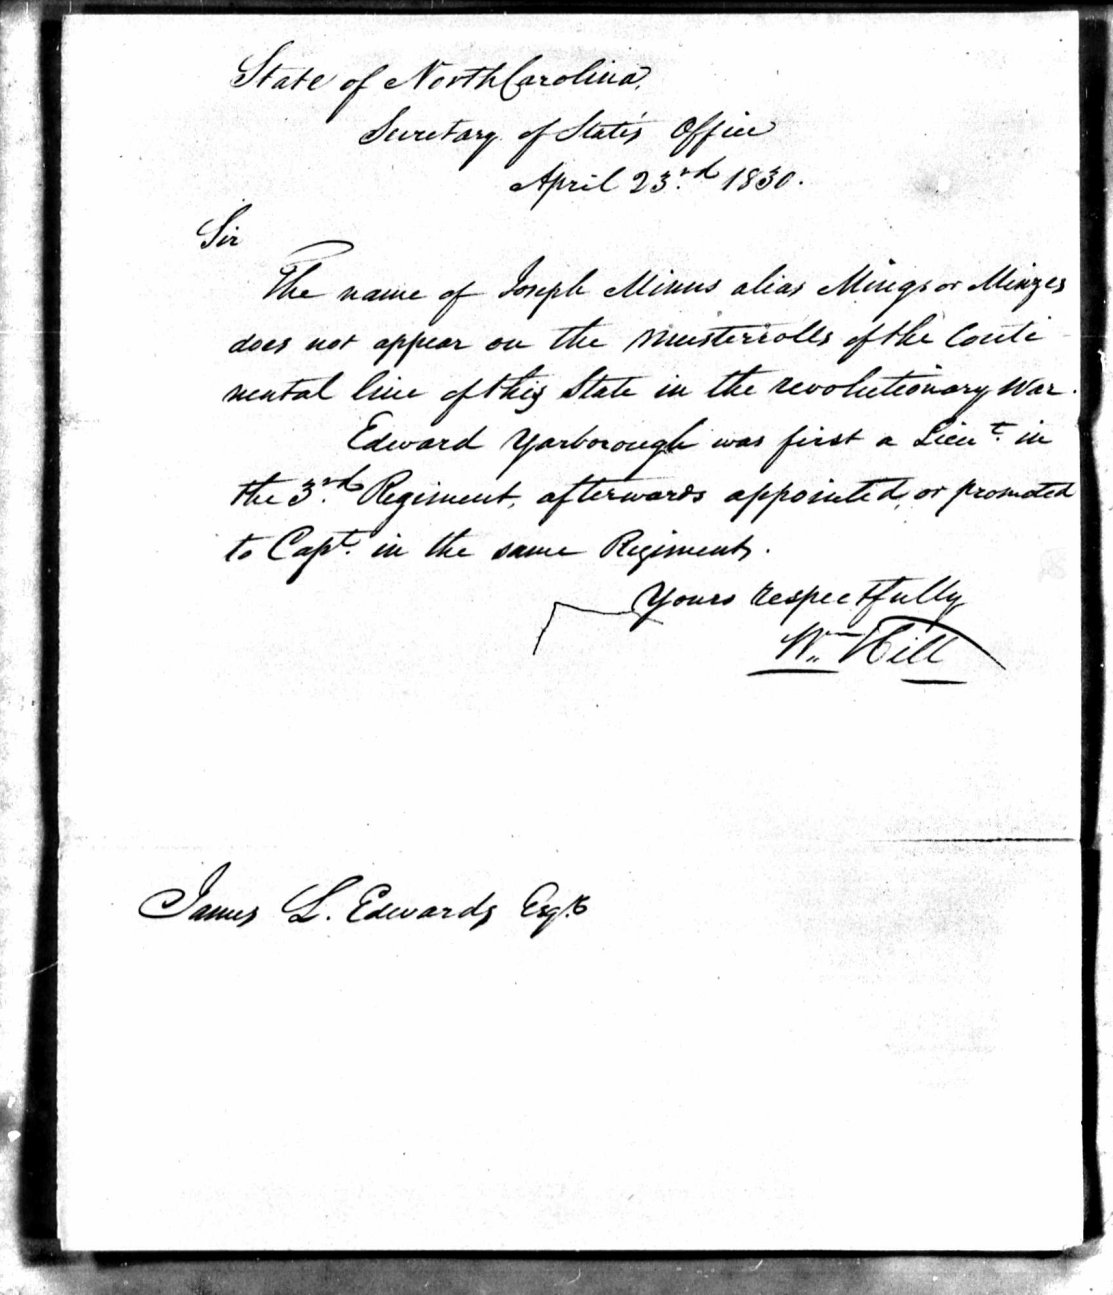 State of North Carolina,
Secretary of State's Office
April 23.rd 1830.
Sir
The name of Joseph Minus alias Mings or Minges
does not appear on the musterrolls of the Conti-
nental line of this State in the revolutionary War.
Edward Yarborough was first a Lieut. in
the 3.rd Regiment, afterwards appointed, or promoted
to Capt. in the same Regiment.
Yours respectfully
Wm Hill
James L. Edwards Esqr